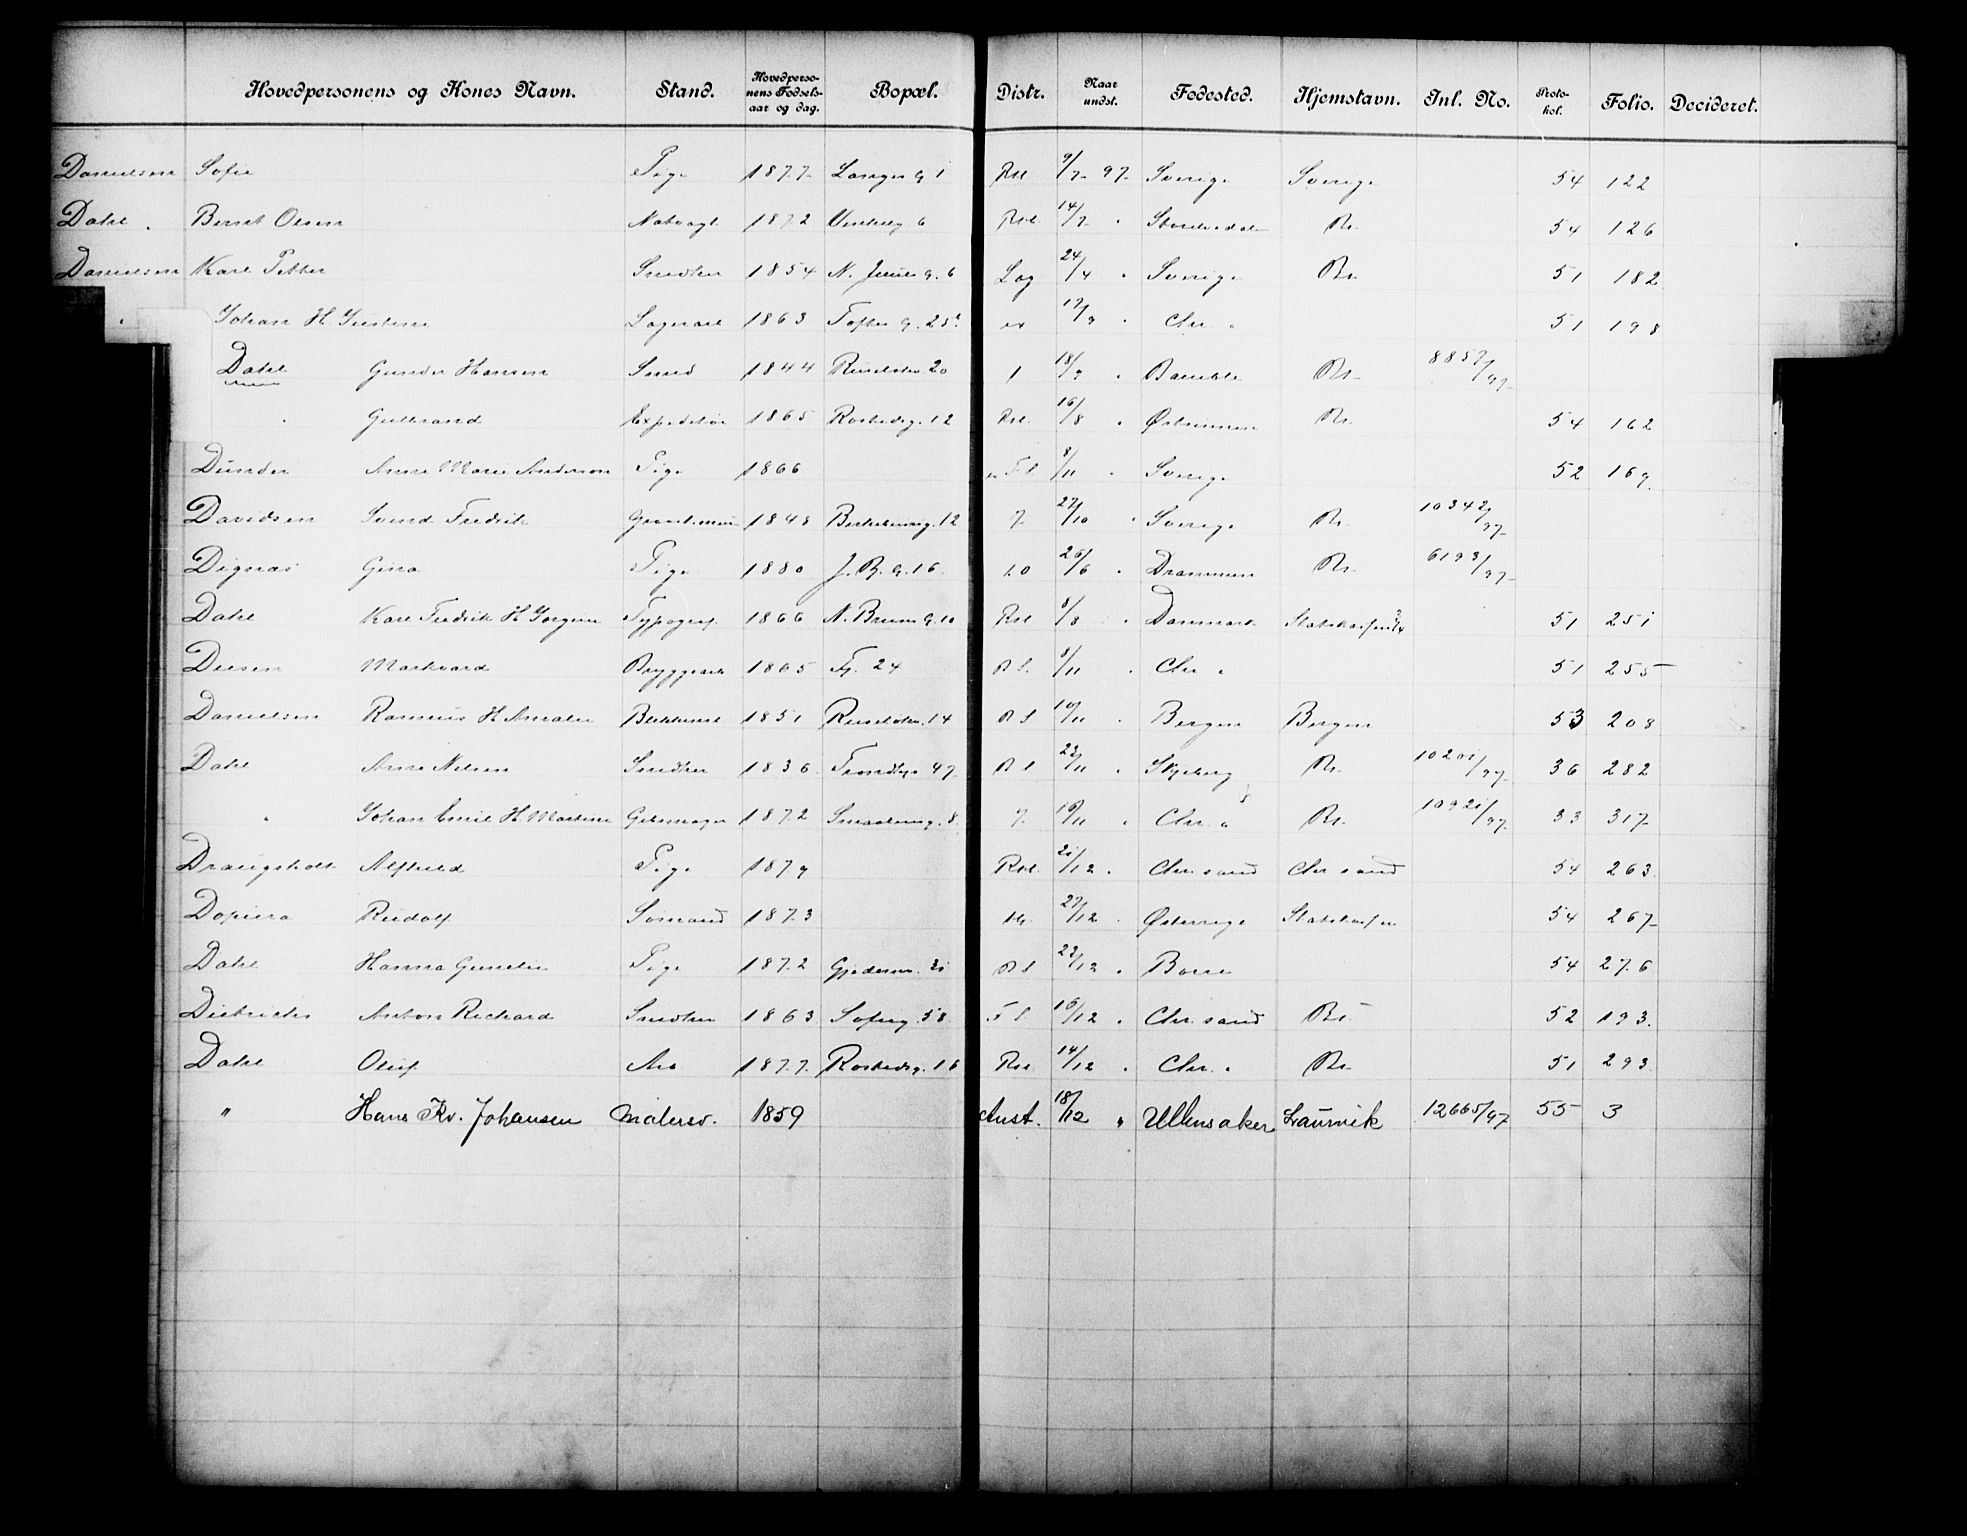 Hovedpersonens og Kones Navn. Stand. Hovedpersonens Fødselsaar og dag. Bopæl. Distr. Naar undst. Fødested. Hjemstavn. Inl. No. Protokol. Folio. Decideret.
Danielsen Sofie Pige 1877 Langes g 1 Rst 9/7 97 Sverige Sverige 54 122
Dahl Bernt Olsen Natvagt 1872 6 Rst. 14/7 " Rr. 54 126
Danielsen Karl Petter Snedker 1854 N. g. 6 Lag 24/4 " Sverige Rr. 51 182
" Johan H. Justine 1863 Toftes g. 25 17/9 " Chr. a 51 198
Dahl Gunder Hansen Smed 1844 20 1 18/9 " Bamble Rr. 8857/97
" Gulbrand Expeditør 1865 Rostedsg. 12 Rst. 16/8 " Rr. 54 162
Dunder Anne Marie Anderson Pige 1866 8/11 " Sverige 52 169
Davidsen Svend Fredrik 1848 12 7 27/10 " Sverige Rr. 10342/97
Digeraas Gina Pige 1880 J. B. g. 16 10 26/6 " Drammen Rr. 6193/97
Dahl Karl Fredrik H. Jørgine Typograf 1866 N. Bruns g. 10 Rst 8/8 " Danmark Statskassen 51 251
Diesen Markvard Bryggearb 1865 24 R l. 8/11 " Chr. a 51 255
Danielsen Rasmus H. Amalie 1851 14 R l 10/11 " Bergen Bergen 53 208
Dahl Arne Nilsen Snedker 1836 47 R l 23/11 " Skjeberg Rr. 10201/97 36 282
" Johan Emil H. Martine 1872 Smaaleneng. 8 7 16/11 " Chr. a Rr. 10921/97 33 317
Draugsholt Alfhild Pige 1879 Rst. 21/12 " Chr. sand Chr sand 54 263
Dopiera Rudolf Sømand 1873 27/12 " Østerrige Statskassen 54 267
Dahl Hanna Gunelie Pige 1872 21 R l 22/12 " Borre 54 276
Dietrichs Anton Richard Snedker 1863 Sofieg. 58 F l. 16/12 " Chr. sand Rr 52 193
Dahl Oluf Arb 1877 Rostedsg. 16 Rst 14/12 " Chr. a Rr. 51 293
" Hans Kr. Johansen Malersv. 1859 Anst. 18/12 " Ullensaker Laurvik 12665/97 55 3